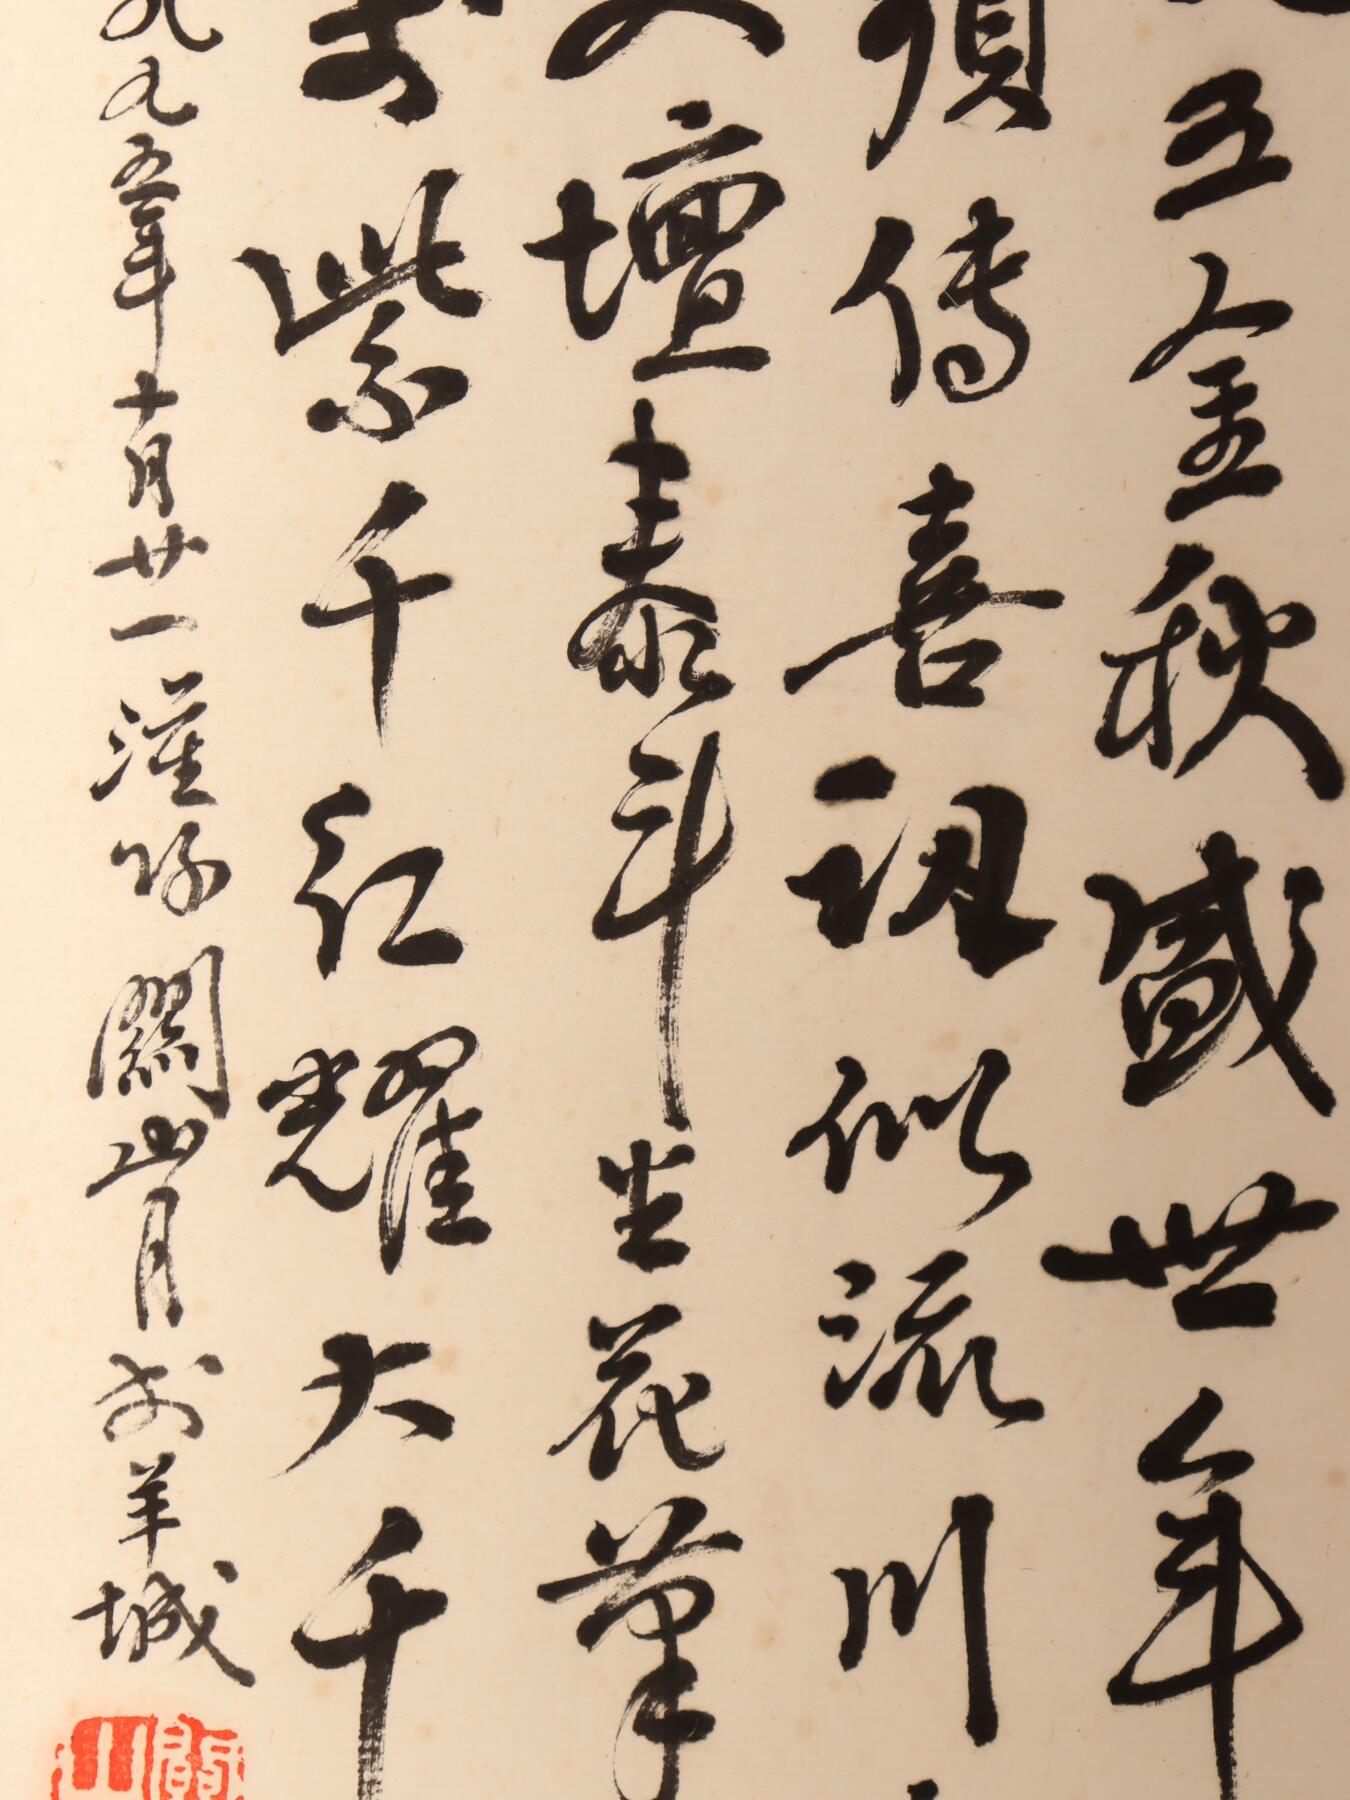 五金秋盛世年
須傳喜訊似流川
文壇泰斗生花筆
紫千紅耀大千
九九五年十月廿一灌吟關山月於羊城